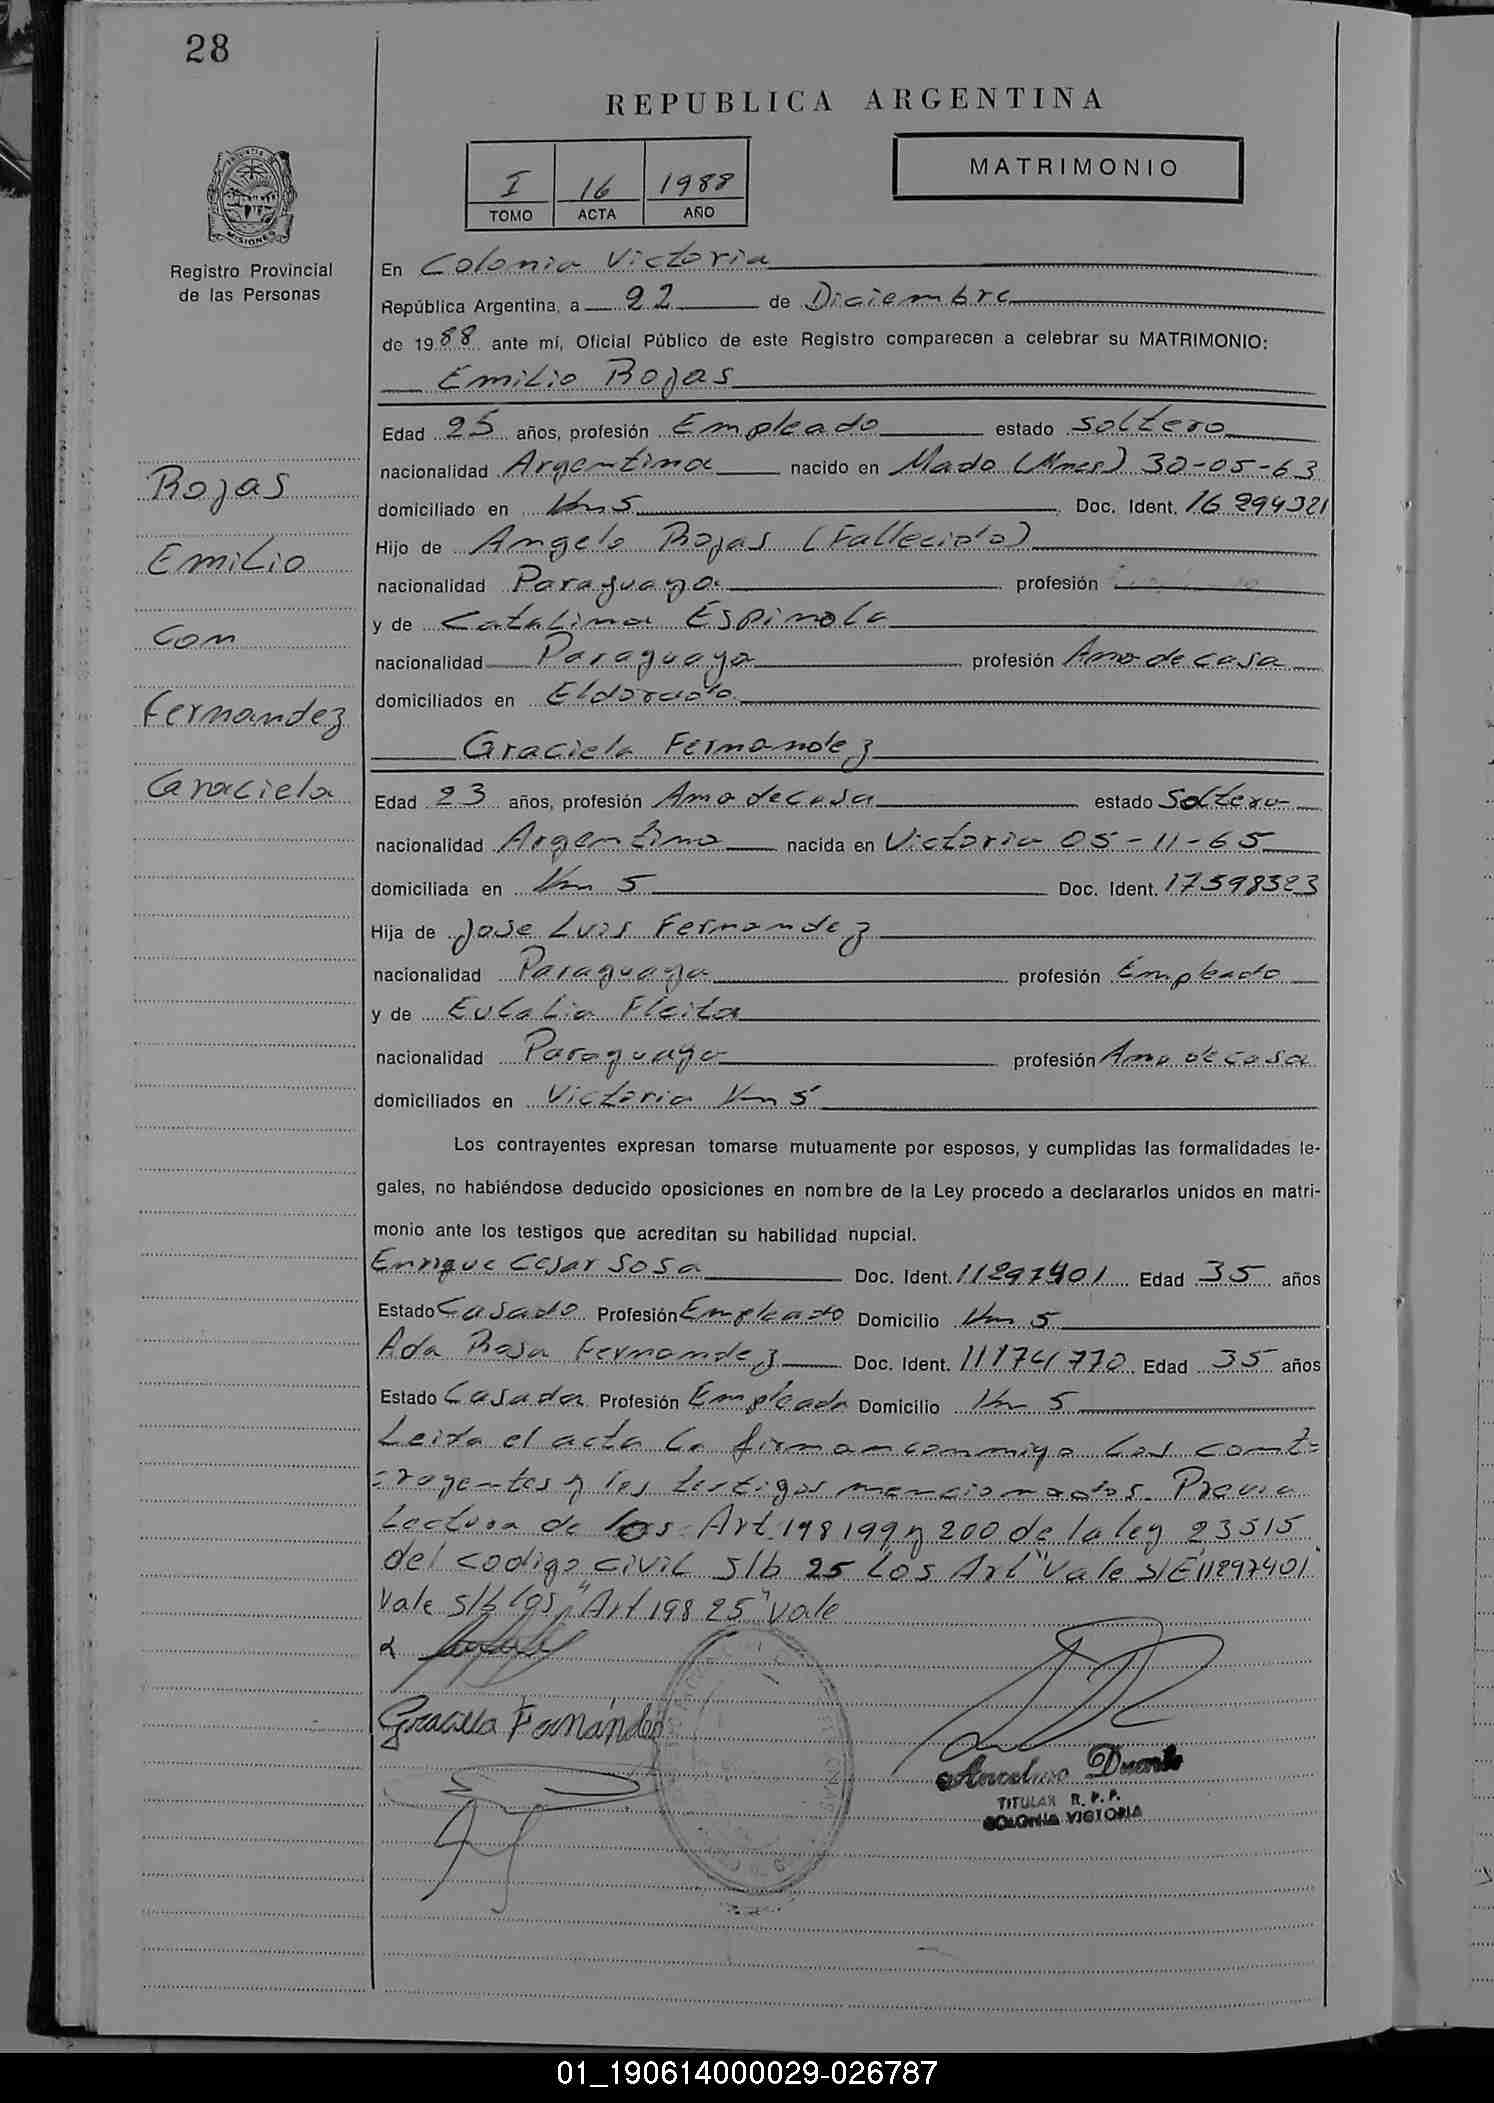 28
REPUBLICA ARGENTINA
MATRIMONIO
I 16 1988
TOMO ACTA AÑO
PROVINCIA DE
MISIONES
Registro Provincial
de las Personas
En Colonia Victoria
República Argentina, a 22 de Diciembre
de 1988 ante mí, Oficial Público de este Registro comparecen a celebrar su MATRIMONIO:
Emilio Rojas
Edad 25 años, profesión Empleado estado soltero
nacionalidad Argentina nacido en Mado (Mnes) 30-05-63
Rojas
domiciliado en Km 5 Doc. Ident. 16 294321
Hijo de Angelo Rojas (Fallecido)
Emilio
nacionalidad Paraguaya profesión
y de Catalina Espinola
con
nacionalidad Paraguaya profesión Ama de casa
domiciliados en Eldorado
Fernandez
Graciela Fernandez
Garaciela
Edad 23 años, profesión Ama de casa estado Soltera
nacionalidad Argentina nacida en Victoria 05-11-65
domiciliada en Km 5 Doc. Ident. 17598323
Hija de Jose Luis Fernandez
nacionalidad Paraguaya profesión Empleado
y de Eulalia Fleita
nacionalidad Paraguaya profesión Ama de casa
domiciliados en Victoria Km 5
Los contrayentes expresan tomarse mutuamente por esposos, y cumplidas las formalidades le-
gales, no habiéndose deducido oposiciones en nombre de la Ley procedo a declararlos unidos en matri-
monio ante los testigos que acreditan su habilidad nupcial.
Enrique Cesar Sosa Doc. Ident. 11297401 Edad 35 años
Estado Casado Profesión Empleado Domicilio Km 5
Ada Rosa Fernandez Doc. Ident. 11174770 Edad 35 años
Estado Casada Profesión Empleada Domicilio Km 5
Leida el acta la firman conmigo los cont=
=rayentes y los testigos mencionados. Previa
Lectura de los Art 198 199 y 200 de la ley 23515
del codigo civil s/b 25 los Art "Vale S/E 11297401"
Vale s/b los "Art 198 25" vale
Graciela Fernández
Ancelmo Duarte
TITULAR R. P. P.
COLONIA VICTORIA
01_190614000029-026787